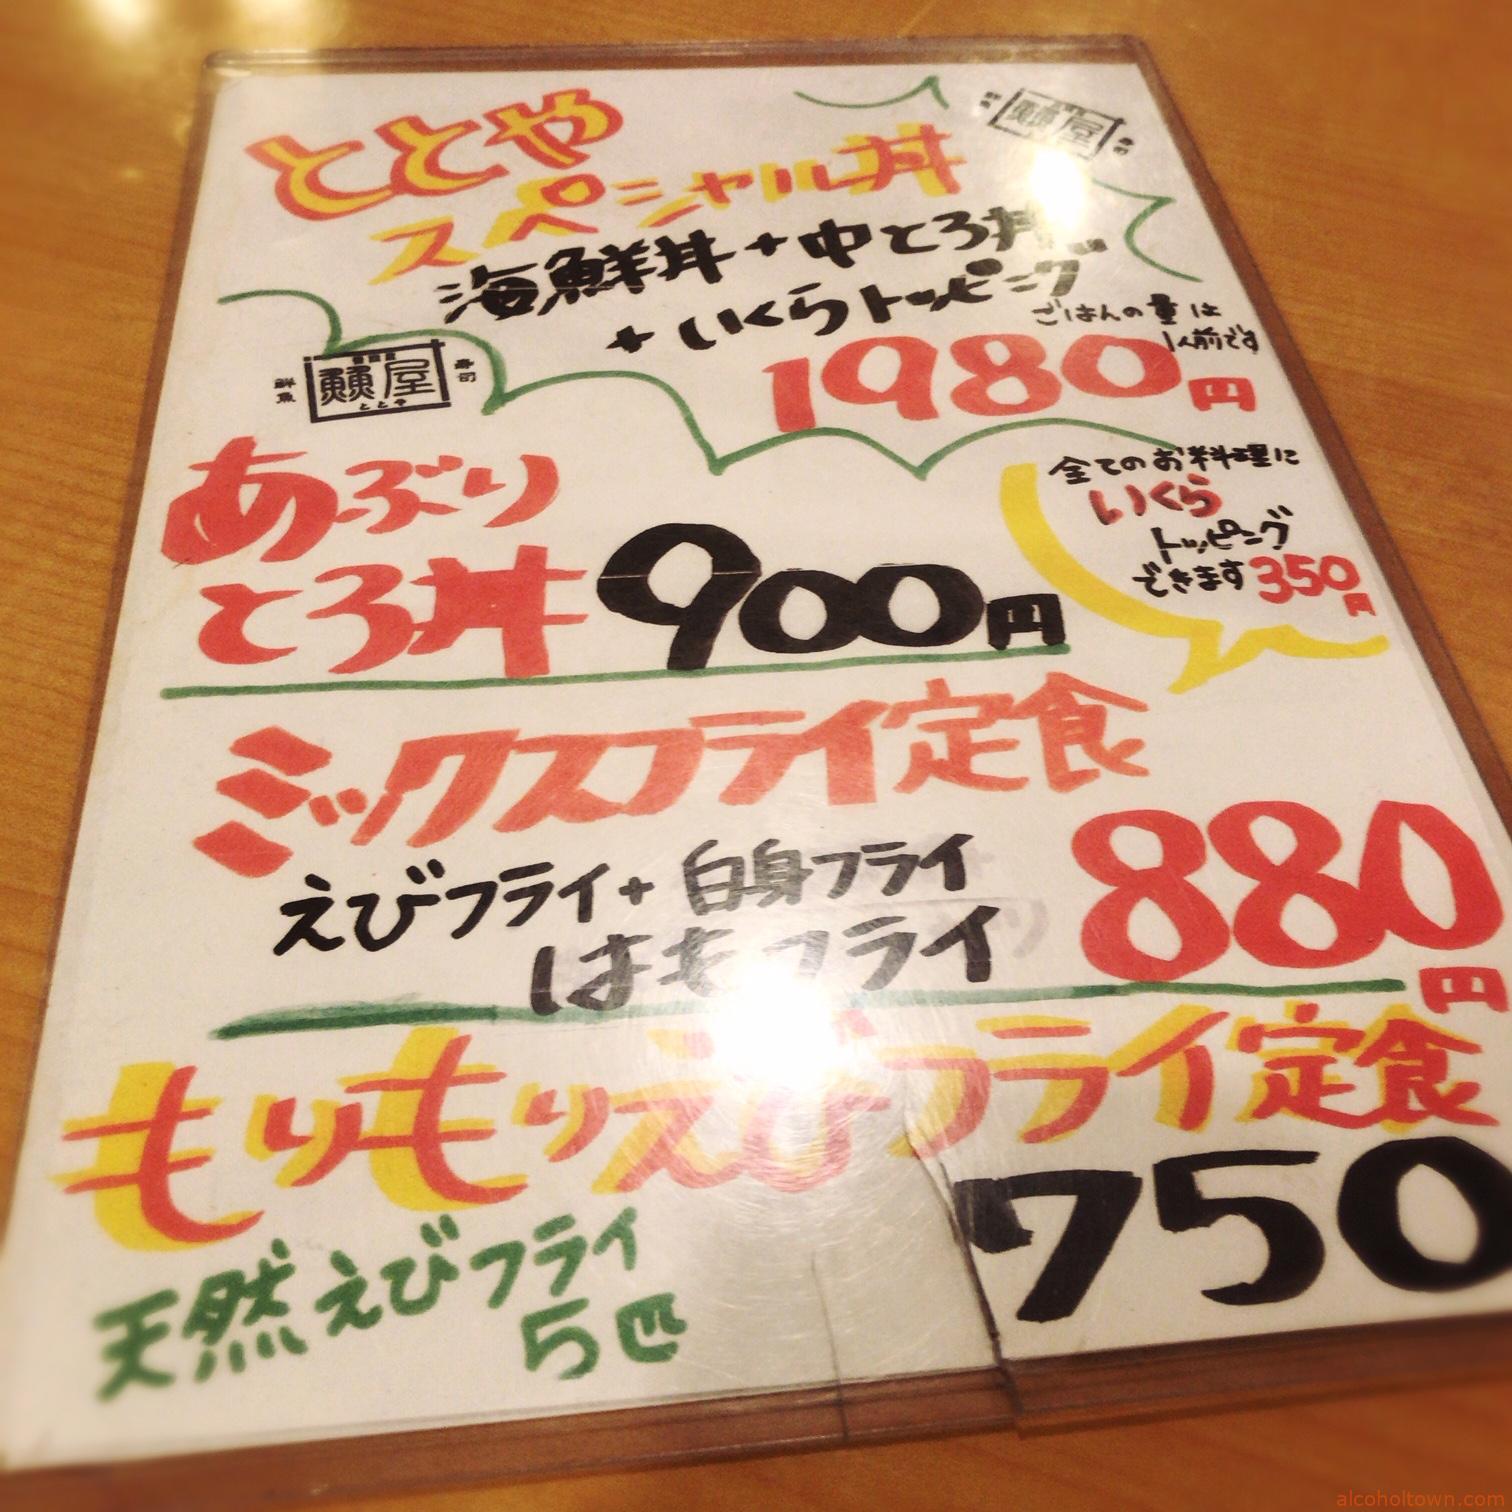 ととや
スペシャル丼
海鮮丼+中とろ丼
+いくらトッピング
ごはんの量は
1人前です
1980円
鮮魚
屋
ととや
寿司
あぶり
とろ丼 900円
全てのお料理に
いくら
トッピング
できます350円
ミックスフライ定食
えびフライ+白身フライ
はもフライ
880円
もりもりえびフライ定食
750
天然えびフライ
5匹
alcoholtown.com